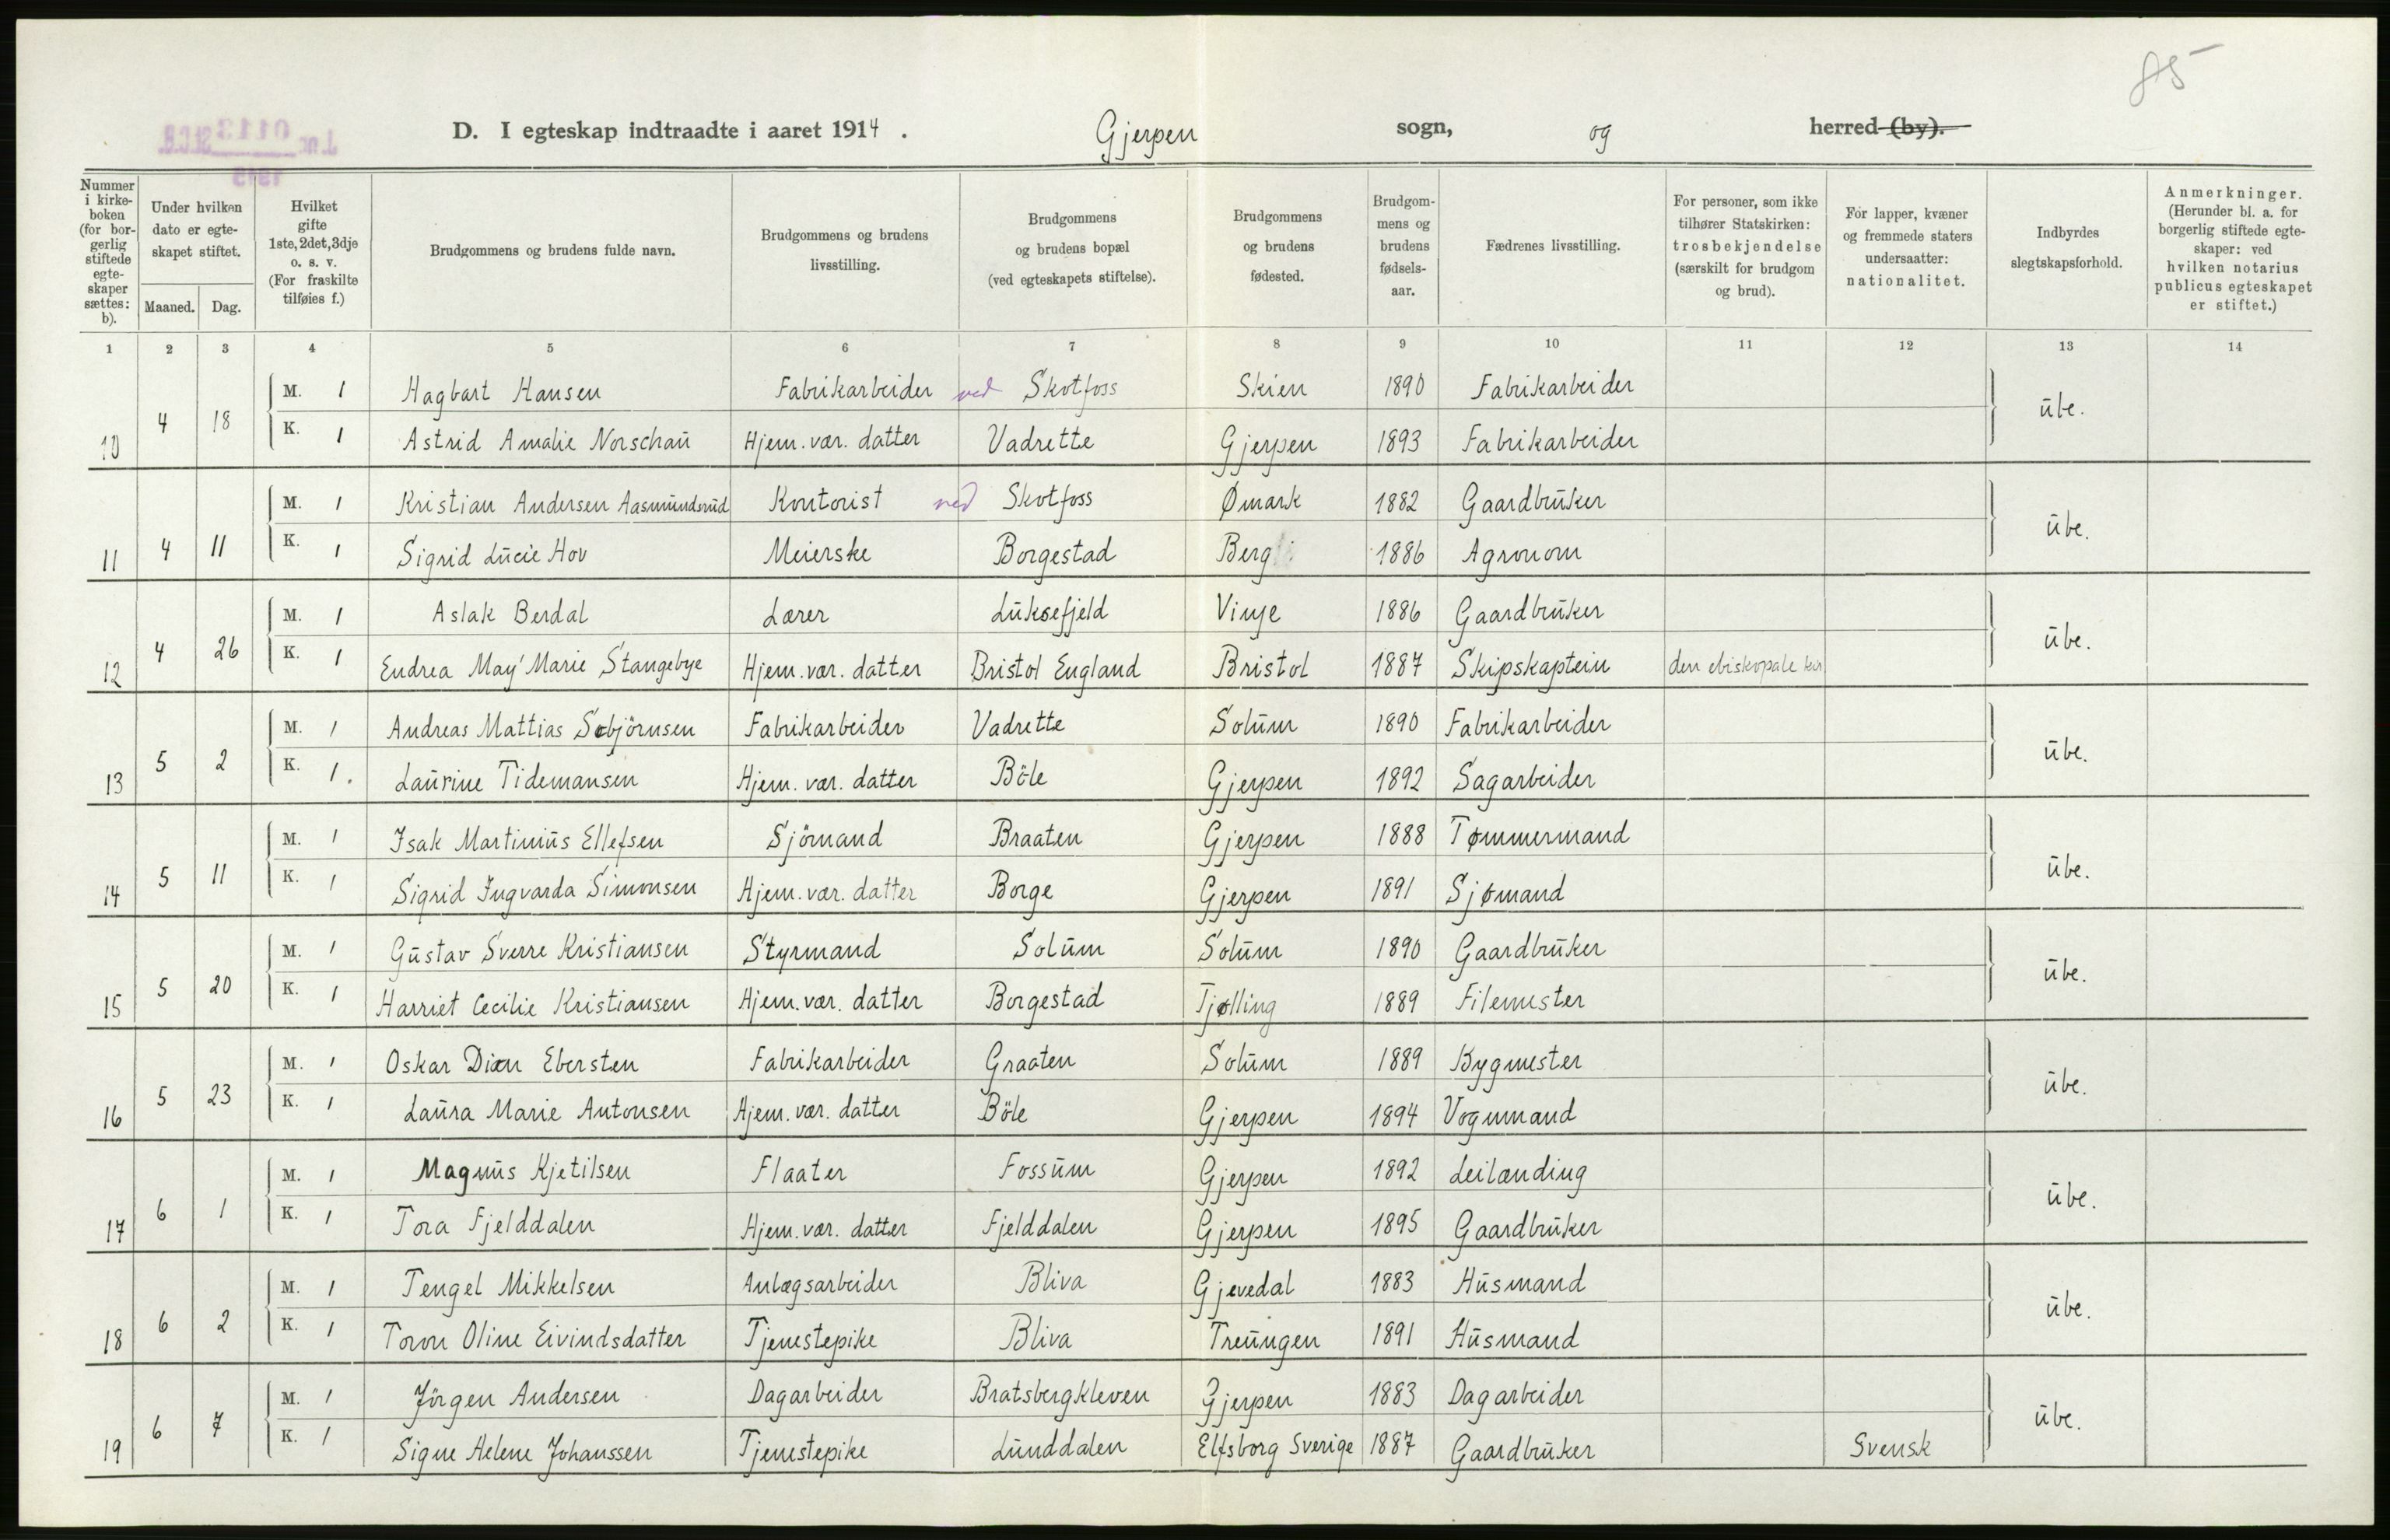 85
D. I egteskap indtraadte i aaret 1914. Gjerpen sogn, og herred (by).
Nummer i kirkeboken (for borgerlig stiftede egteskaper sættes: b).
Under hvilken dato er egteskapet stiftet.
Maaned. Dag.
Hvilket gifte 1ste, 2det, 3dje o. s. v. (For fraskilte tilføies f.)
Brudgommens og brudens fulde navn.
Brudgommens og brudens livsstilling.
Brudgommens og brudens bopæl (ved egteskapets stiftelse).
Brudgommens og brudens fødested.
Brudgommens og brudens fødselsaar.
Fædrenes livsstilling.
For personer, som ikke tilhører Statskirken: trosbekjendelse (særskilt for brudgom og brud).
For lapper, kvæner og fremmede staters undersaatter: nationalitet.
Indbyrdes slegtskapsforhold.
Anmerkninger. (Herunder bl. a. for borgerlig stiftede egteskaper: ved hvilken notarius publicus egteskapet er stiftet.)
1 2 3 4 5 6 7 8 9 10 11 12 13 14
10 4 18 M. 1 Hagbart Hansen Fabrikarbeider ved Skotfoss Skien 1890 Fabrikarbeider übe.
K. 1 Astrid Amalie Norschaü Hjem. vær. datter Vadrette Gjerpen 1893 Fabrikarbeider
11 4 11 M. 1 Kristian Andersen Aasmündsrüd Kontorist ved Skotfoss Ømark 1882 Gaardbrüker übe.
K. 1 Sigrid Lücie Hov Meierske Borgestad Berg 1886 Agronom
12 4 26 M. 1 Aslak Berdal Lærer Lüksefjeld Vinje 1886 Gaardbrüker übe.
K. 1 Endrea May Marie Stangebye Hjem. vær. datter Bristol England Bristol 1887 Skipskaptein den ebiskopale
13 5 2 M. 1 Andreas Mattias Sebjörnsen Fabrikarbeider Vadrette Solüm 1890 Fabrikarbeider übe.
K. 1. Laürine Tidemansen Hjem. vær. datter Böle Gjerpen 1892 Sagarbeider
14 5 11 M. 1 Isak Martiniüs Ellefsen Sjömand Braaten Gjerpen 1888 Tømmermand übe.
K. 1 Sigrid Ingvarda Simonsen Hjem. vær. datter Borge Gjerpen 1891 Sjømand
15 5 20 M. 1 Güstav Sverre Kristiansen Styrmand Solüm Solüm 1890 Gaardbrüker übe.
K. 1 Harriet Cecilie Kristiansen Hjem. vær. datter Borgestad Tjølling 1889 Filemester
16 5 23 M. 1 Oskar Dian Ebersten Fabrikarbeider Graaten Solüm 1889 Bygmester übe.
K. 1 Laüra Marie Antonsen Hjem. vær. datter Böle Gjerpen 1894 Vognmand
17 6 1 M. 1 Magnüs Kjetilsen Flaater Fossüm Gjerpen 1892 Leilænding übe.
K. 1 Tora Fjelddalen Hjem. vær. datter Fjelddalen Gjerpen 1895 Gaardbrüker
18 6 2 M. 1 Tengel Mikkelsen Anlægsarbeider Bliva Gjevedal 1883 Hüsmand übe.
K. 1 Toron Oline Eivindsdatter Tjenestepike Bliva Treüngen 1891 Hüsmand
19 6 7 M. 1 Jörgen Andersen Dagarbeider Bratsbergkleven Gjerpen 1883 Dagarbeider übe.
K. 1 Signe Helene Johanssen Tjenestepike Lünddalen Elfsborg Sverige 1887 Gaardbrüker Svensk